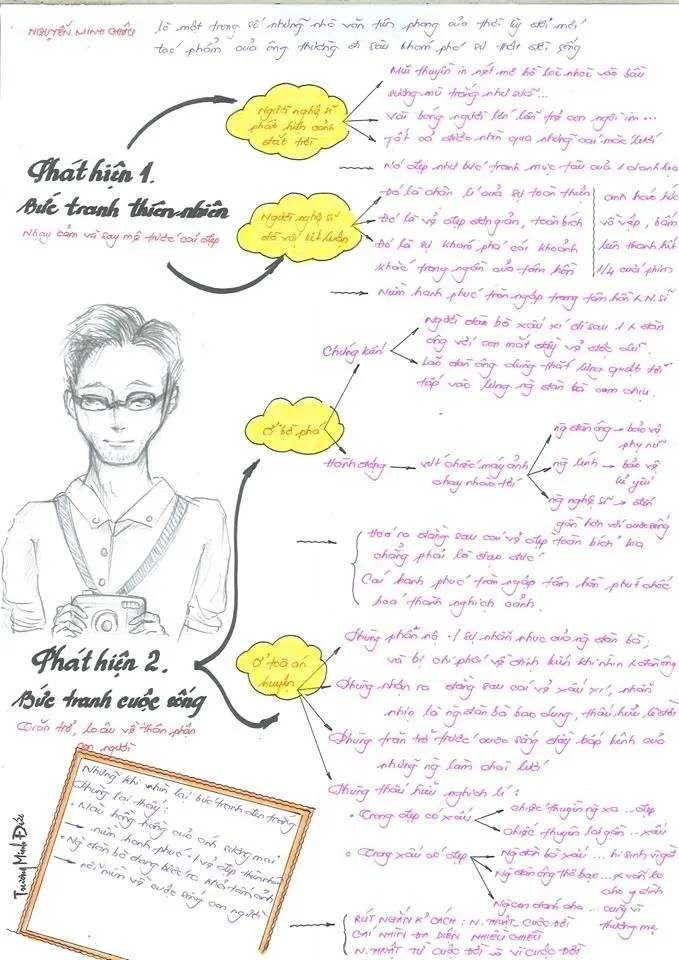 NGUYỄN MINH CHÂU
là một trong số những nhà văn tiên phong của thời kỳ đổi mới
tác phẩm của ông thường đi sâu khám phá sự thật đời sống
Phát hiện 1.
Bức tranh thiên nhiên
Nhạy cảm và say mê trước cái đẹp
Người nghệ sĩ
phát hiện cảnh
đắt trời
Mũi thuyền in nét mơ hồ loè nhoè vào bầu
sương mù trắng như sữa...
Vài bóng người lớn lẫn trẻ con ngồi im...
Tất cả được nhìn qua những cái mắc lưới
Nó đẹp như bức tranh mực tàu của 1 danh hoạ
Người nghệ sĩ
đã vội kết luận
Đó là chân lí của sự toàn thiện
Đó là vẻ đẹp đơn giản, toàn bích
Đó là sự khám phá cái khoảnh
khắc trong ngần của tâm hồn
anh háo hức
vồ vập, bấm
liên thanh hết
1/4 cuối phim
Niềm hạnh phúc tràn ngập trong tâm hồn N.sĩ
Ở bờ phá
Chứng kiến
Người đàn bà xấu xí đi sau 1 đàn
ông với con mắt đầy vẻ độc dữ.
Lão đàn ông dùng thắt lưng quật tới
tấp vào lưng ng đàn bà cam chịu.
Hành động
vứt chiếc máy ảnh
chạy nhào tới
ng đàn ông → bảo vệ
phụ nữ
ng lính → bảo vệ
kẻ yếu
ng nghệ sĩ → đến
gần hơn với cuộc sống
Hoá ra đằng sau cái vẻ đẹp toàn bích kia
chẳng phải là đạo đức
Cái hạnh phúc tràn ngập tâm hồn phút chốc
hoá thành nghịch cảnh.
Phát hiện 2.
Bức tranh cuộc sống
Trăn trở, lo âu về thân phận
con người
Ở toà án
huyện
Phùng phẫn nộ sự nhẫn nhục của ng đàn bà;
và bị chi phối về định kiến khi nhìn đàn ông
Phùng nhận ra đằng sau cái vẻ xấu xí, nhẫn
nhịn là ng đàn bà bao dung, thấu hiểu lẽ đời
Phùng trăn trở trước cuộc sống đầy bấp bênh của
những ng làm chài lưới
Phùng thấu hiểu nghịch lí:
• Trong đẹp có xấu
chiếc thuyền ng xa ... đẹp
chiếc thuyền lại gần ... xấu
• Trong xấu có đẹp
Ng đàn bà xấu ... hi sinh vì
Ng đàn ông thô bạo ...
cho gia đình
Ng con đánh cha ... cũng vì
thương mẹ
Những khi nhìn lại bức tranh đen trắng
Phùng lại thấy:
• Màu hồng hồng của ánh sương mai
niềm hạnh phúc vẻ đẹp thiên nhiên
• Ng đàn bà đang bước ra khỏi tấm ảnh
nỗi niềm về cuộc sống con người
Trương Minh Đức
RÚT NGẮN K² CÁCH: N.THUẬT CUỘC ĐỜI
CÁI NHÌN ĐA DIỆN NHIỀU CHIỀU
N.THUẬT TỪ CUỘC ĐỜI VÀ VÌ CUỘC ĐỜI